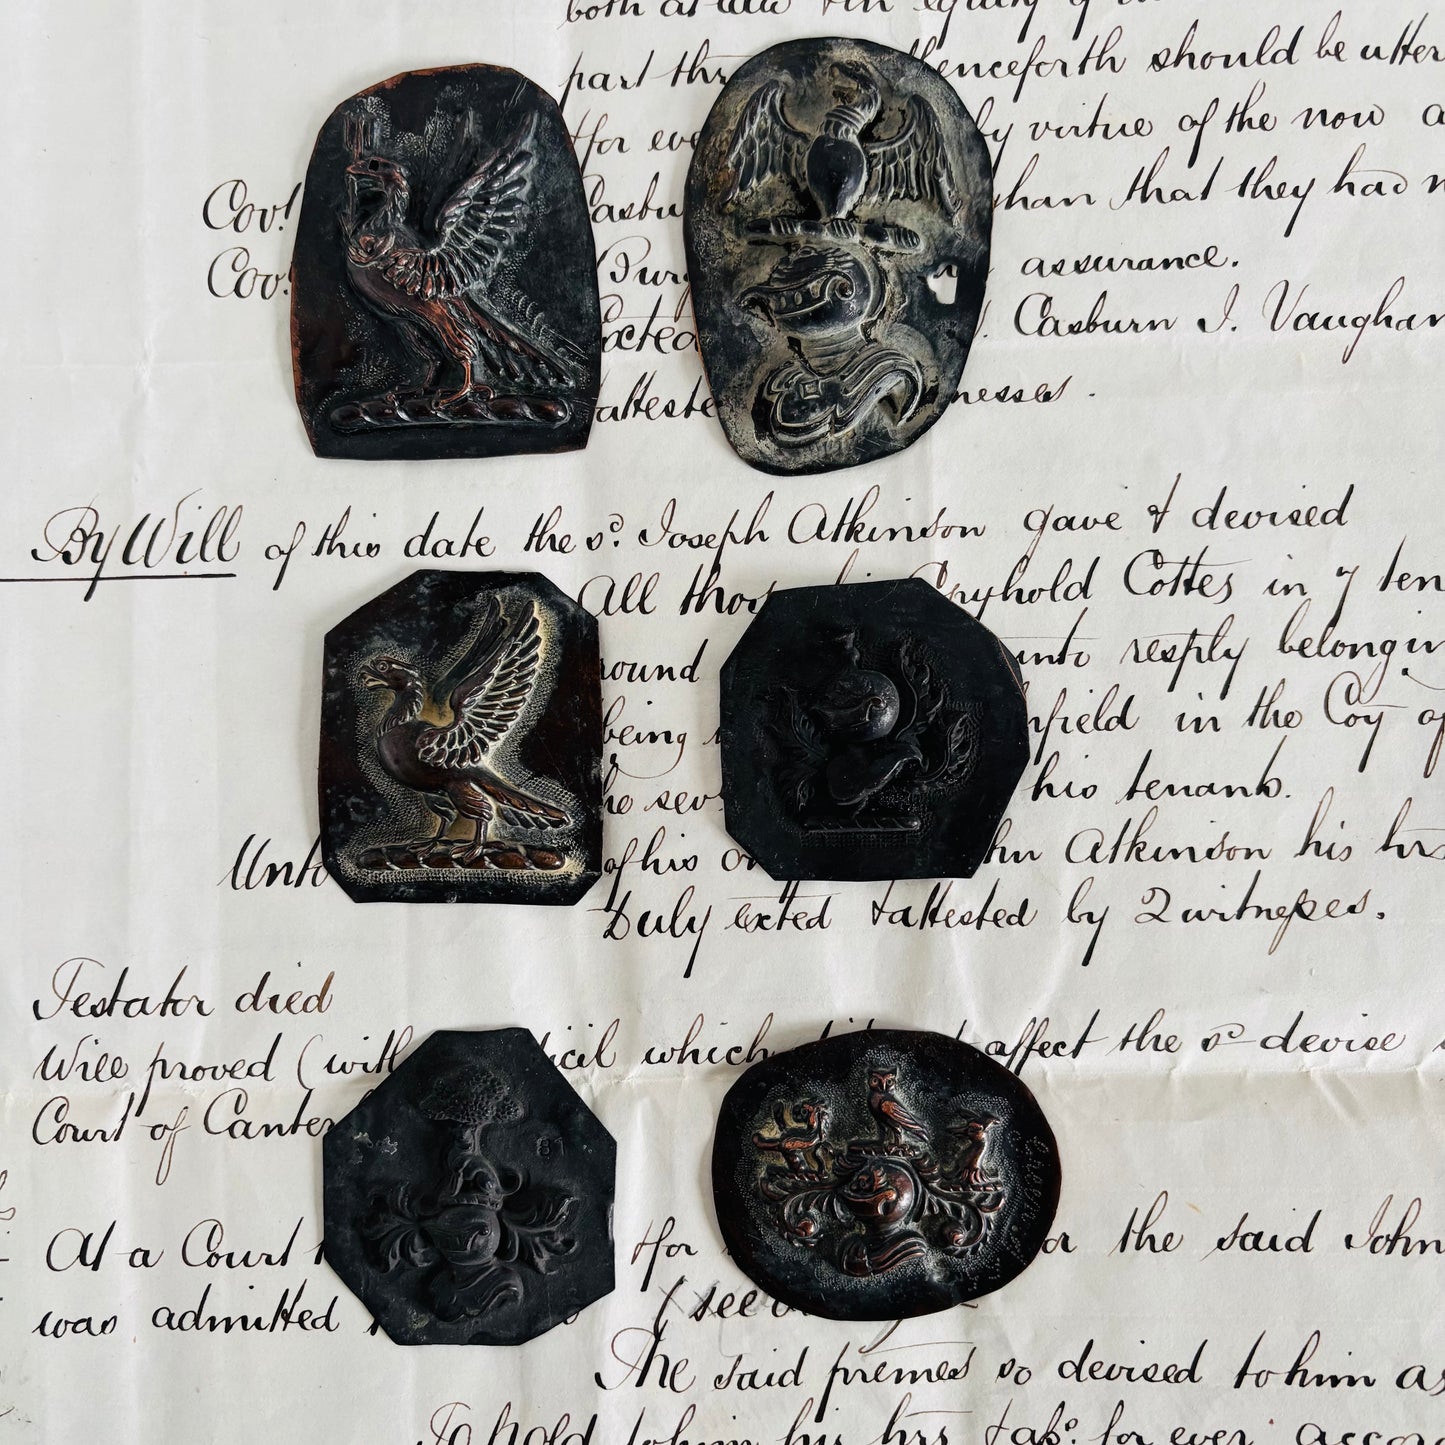 both at law & in equity of
part thr enceforth should be utter
& for eve by virtue of the now a
Cov.t Casbu ghan that they had n
Cov.t Burg assurance.
Exted J. Casburn J. Vaughan
& atteste nesses.
By Will of this date the s.d Joseph Atkinson gave & devised
All thos Copyhold Cottes in 7 ten
round unto resply belongin
being nfield in the Coy of
he sev his tenants.
Unto of his hn Atkinson his hrs
Duly exted & attested by 2 witnesses.
Testator died
Will proved (with icil which affect the s.d devise
Court of Canter
81
At a Court & for or the said John
was admitted (see
The said premes so devised to him as
To hold to him his hrs & ass. for ever accor